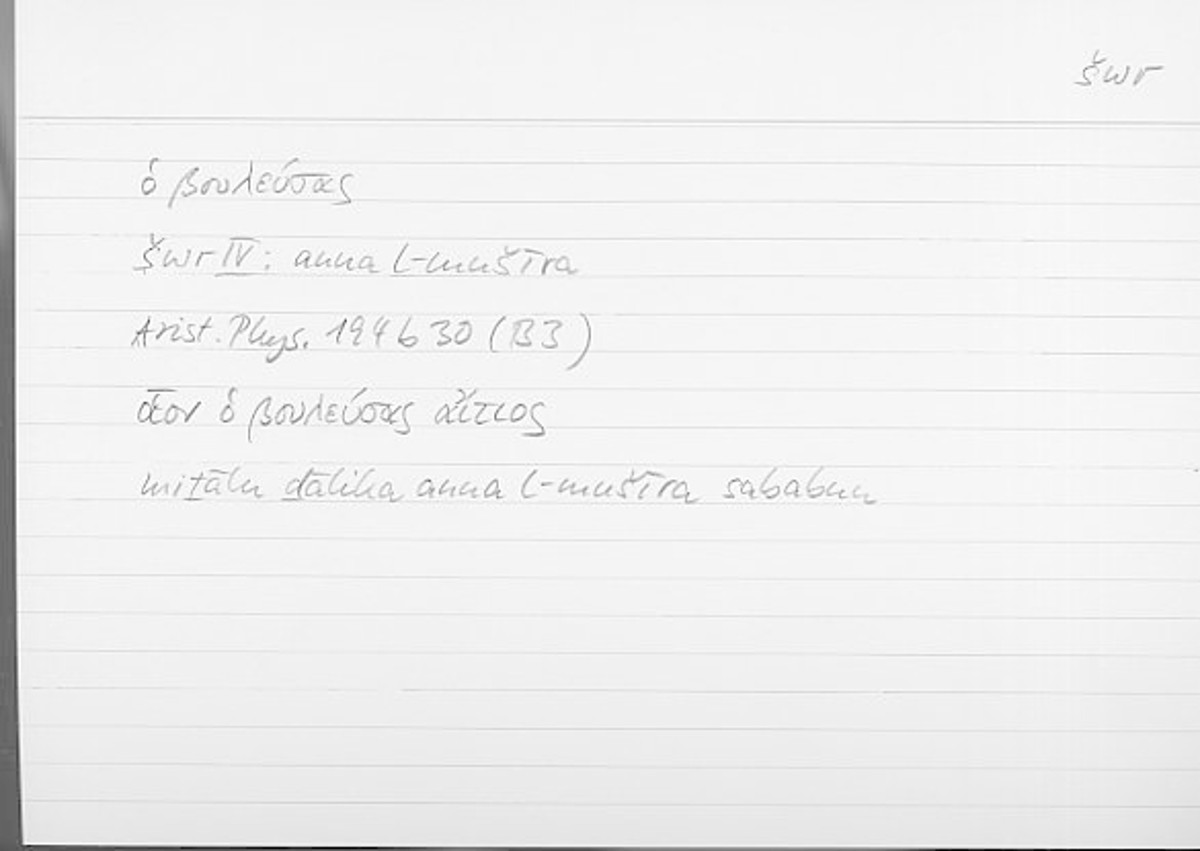 šwr
ὁ βουλεύσας
šwr IV: anna l-mušīra
Arist. Phys. 194 b 30 (B3)
οἷον ὁ βουλεύσας αἴτιος
miṯālu ḏālika anna l-mušīra sababun